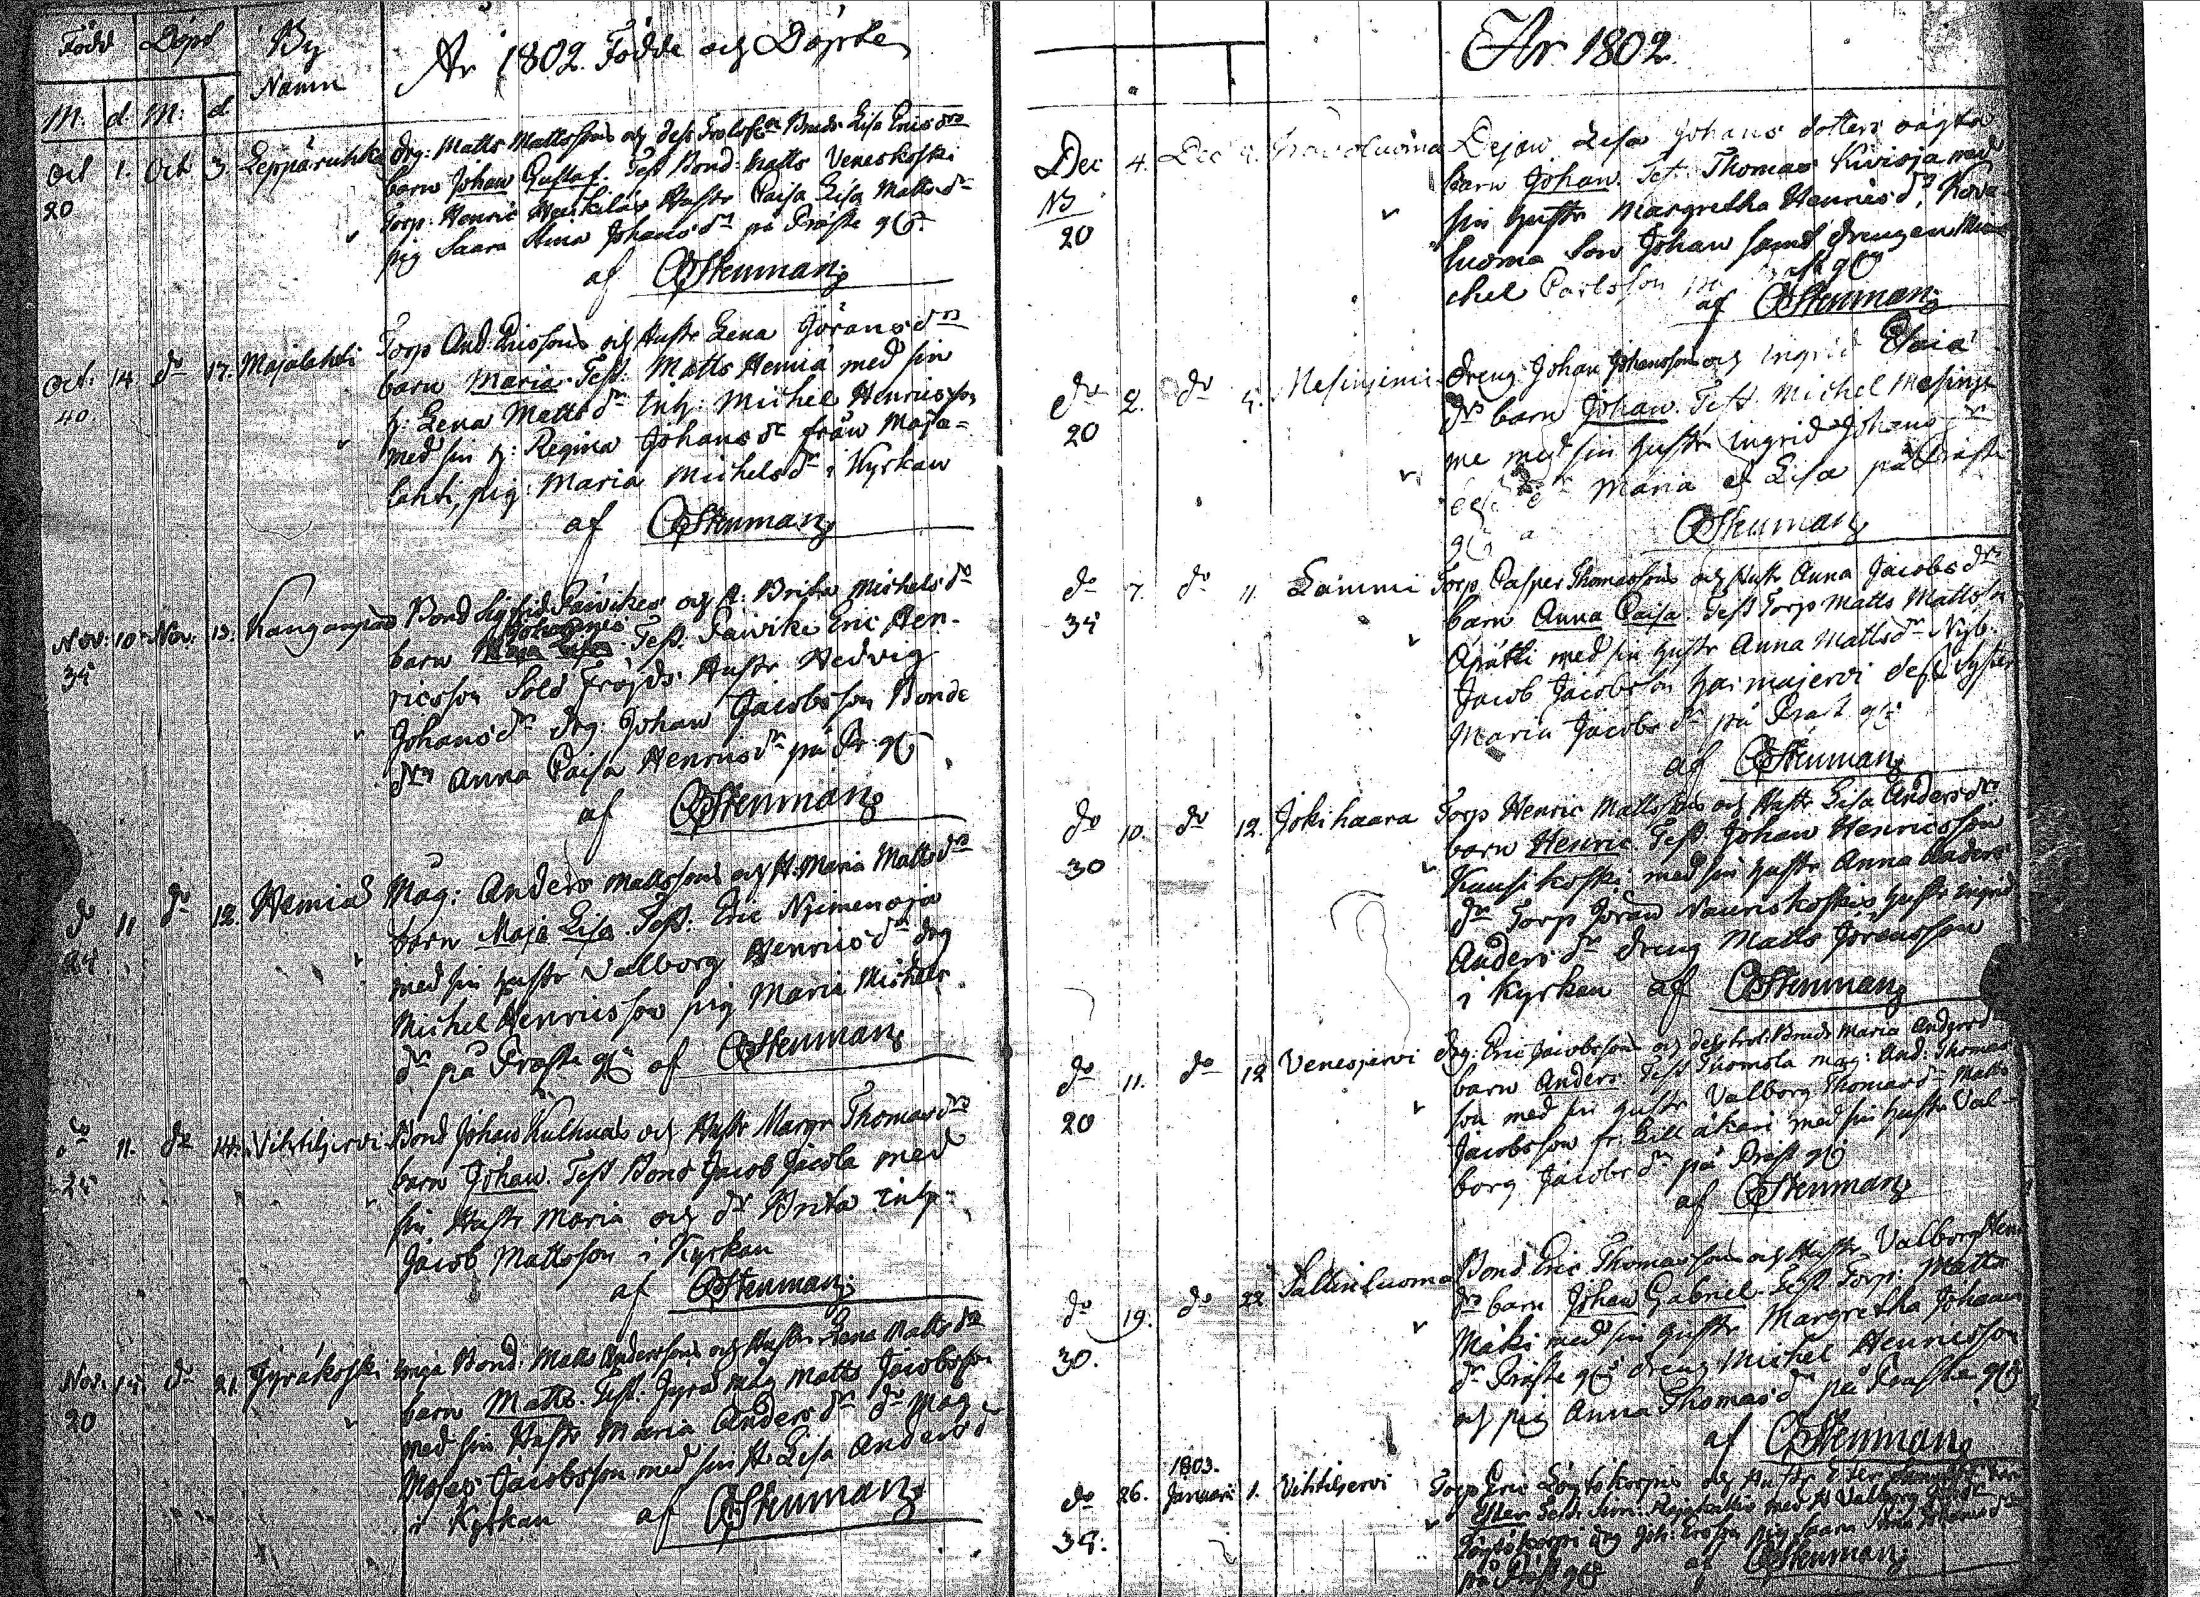 Född Döpt By Namn År 1802. Födde och Döpte
M. d. M. d
Oct 1. Oct 3. Leppäruhka Drg: Matts Mattssons och dess Trolofde Brud Lisa Ericsdrs
20 barn Johan Gustaf. Test Bond: Matts Veneskoski
Torp. Henric Heikiläs Hustr Caisa Lisa Matts dr
pig Saara Stina Johans dr på Präste g.
af CStenman
Torp And. Ericssons och Hustr Lena Jörans drs
Oct. 14 do 17. Majalahti barn Maria. Test: Matts Hemiä med sin
40. h: Lena Matts dr Inh: Michel Henricsson
med sin h: Regina Johans dr från Maja=
lahti, pig: Maria Michels dr i Kyrkan
af CStenman
Nov. 10 Nov. 13. Kanganpää Bond Sigfrid Päivikes och H: Brita Michels dr
35 barn Johannes Test. Päivike Eric Hen-
ricsson Sold Fröjds Hustr Hedvig
Johans dr drg: Johan Jacobsson Bonde
drn Anna Caisa Henrics dr på Pr. g
af CStenman
do 11 do 12. Hemiä Måg: Anders Mattssons och H. Maria Matts drs
24 barn Maja Lisa. Test: Eric Nyimenoja
med sin hustr Valborg Henrics dr drg
Michel Henricsson pig Maria Michels
dr på Präste g af CStenman
do 11. do 14. Vihteljervi Bond Johan Kulhuas och Hustr Margr Thomas drs
25 barn Johan. Test Bond Jacob Jacola med
sin Hustr Maria och dr Brita Inh.
Jacob Mattsson i Kyrkan
af CStenman
Nov. 15. do 21. Jyräkoski unga Bond: Matts Anderssons och Hustr Lena Matts dr
20 barn Matts. Test: Jyrä Måg Matts Jacobsson
med sin Hustr Maria Anders dr do Måg
Moses Jacobsson med sin H. Lisa Anders dr
i Kyrkan af CStenman
År 1802.
Dec 4. Dec Dejan Lisa Johans dotters oägta
NB barn Johan. Test. Thomas Kivioja med
20 sin hustr Margretha Henrics dr, Kova
luoma Son Johan samt drengen Mi
chel Carlsson
af CStenman
do 2. do 5. Mesinjemi Dreng Johan Johansson och Ingrid Elaiä
20 drs barn Johan. Test. Michel Mesinje
me med sin hustr Ingrid Johans dr
Maria och Lisa på Präste
CStenman
do 7. do 11. Lammi Torp Casper Thomassons och Hustr Anna Jacobs drs
35 barn Anna Caisa. Test Torp Matts Mattss
Äpätti med sin hustr Anna Matts dr Nyb.
Jacob Jacobsson Harmajervi dess Syster
Maria Jacobs dr på Präst g
af CStenman
do 10. do 12. Jokihaara Torp Henric Mattssons och Hustr Lisa Anders drs
30 barn Henric Test. Johan Henricsson
Kuusikoski med sin hustr Anna Anders
dr Torp Jöran Nauriskoskis hustr Ingrid
Anders dr dreng Matts Jöransson
i Kyrkan af CStenman
do 11. do 12 Venesjervi drg: Eric Jacobsson och dess trol. Brud Maria Anders d
20 barn Anders. Test Tuomola måg: And: Thomas
son med sin hustr Valborg Thomas dr Matts
Jacobsson fr. Lill åkari med sin hustr Val-
borg Jacobs dr på Präst g
af CStenman
do 19. do 22 Sallinluoma Bond Eric Thomasson och Hustr Valborg Hen
30. drs barn Johan Gabriel. Test Torp: Matts
Mäki med sin hustr Margretha Johans
dr Präste g dreng Michel Henricsson
och pig Anna Thomas dr på Präste g
af CStenman
1803.
do 26. Januarii 1. Vihteljervi Torp Eric Löytökorpis och Hustr Ester
35. Ester Test. med H Valborg
Löytökorpi drg Joh: Ersson pig Saara Stina Johans dr
på Präst g af CStenman